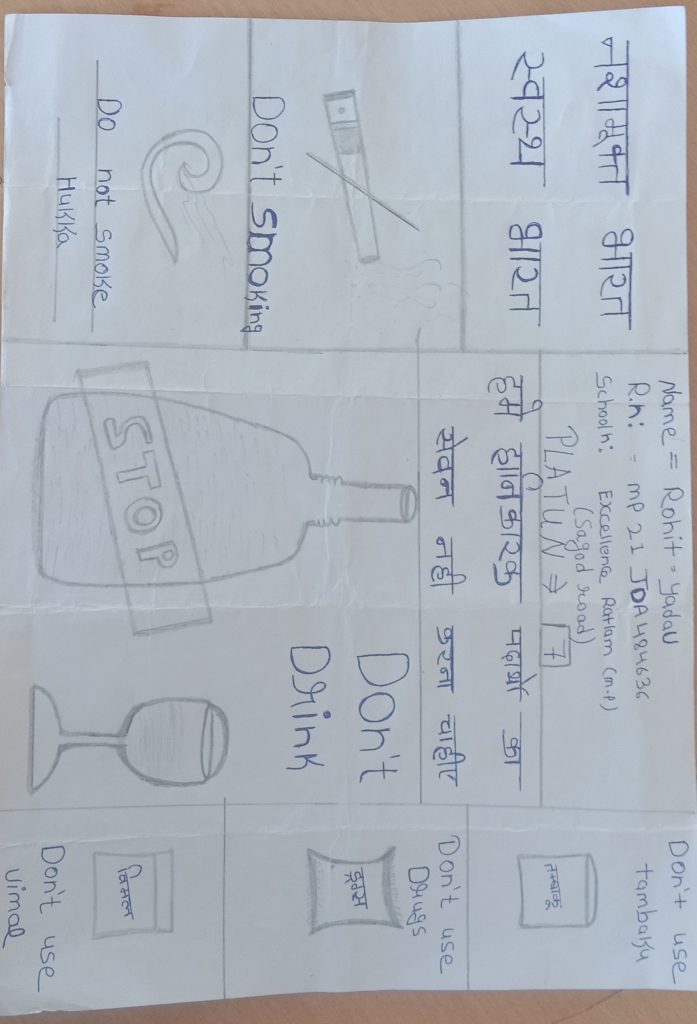 नशामुक्त भारत
स्वस्थ भारत
Don't smoking
Do not smoke
Hukka
Name = Rohit - yadav
R.n: - MP 21 JDA 484636
Schooln: Excellence Ratlam (m.p)
(Sagod road)
PLATUN ⇒ 7
हमे हानिकारक पदार्थो का
सेवन नही करना चाहीए
Don't
Drink
STOP
Don't use
tambaku
तम्बाकू
Don't use
Drugs
ड्रग्स
Don't use
vimal
विमल